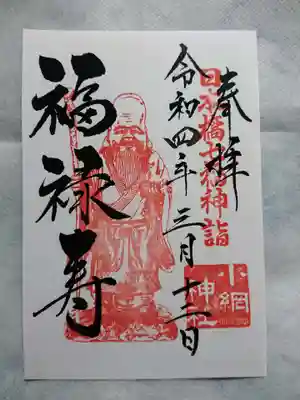 奉拝
日本橋七福神詣
令和四年三月十二日
小網
神社
福禄寿